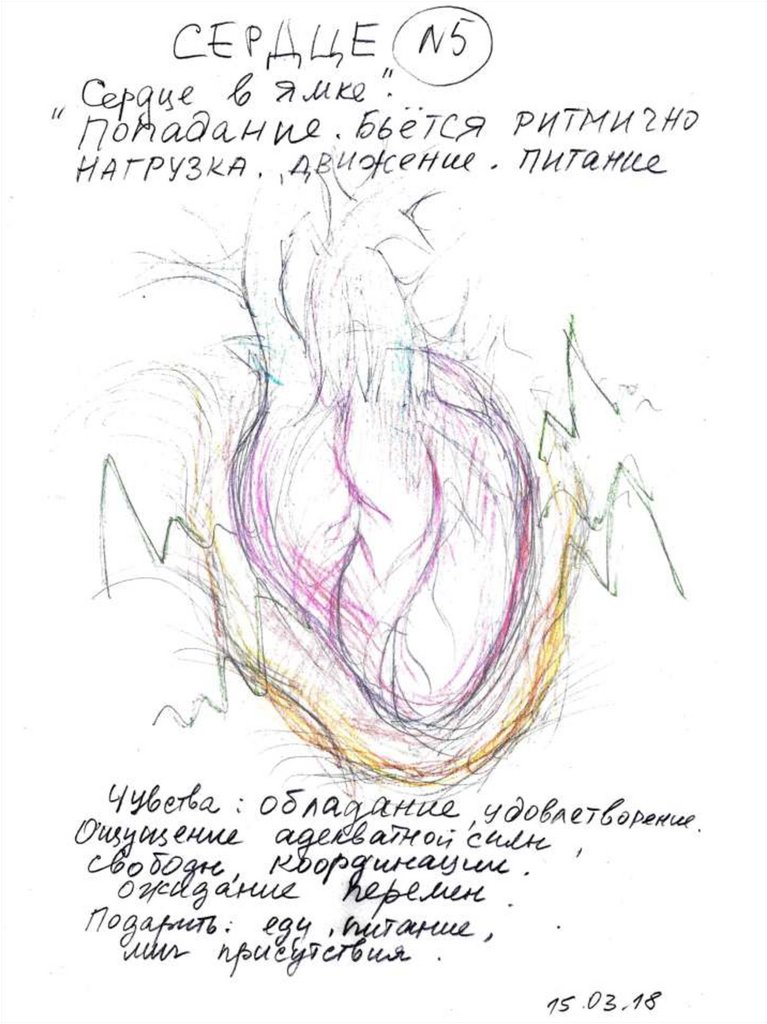 СЕРДЦЕ №5
"Сердце в ямке".
"Попадание. Бьётся ритмично
Нагрузка. движение. питание
Чувства: обладание, удовлетворение.
Ощущение адекватной силы,
свободы, координации.
ожидание перемен.
Подарить: еду, питание,
миг присутствия.
15.03.18